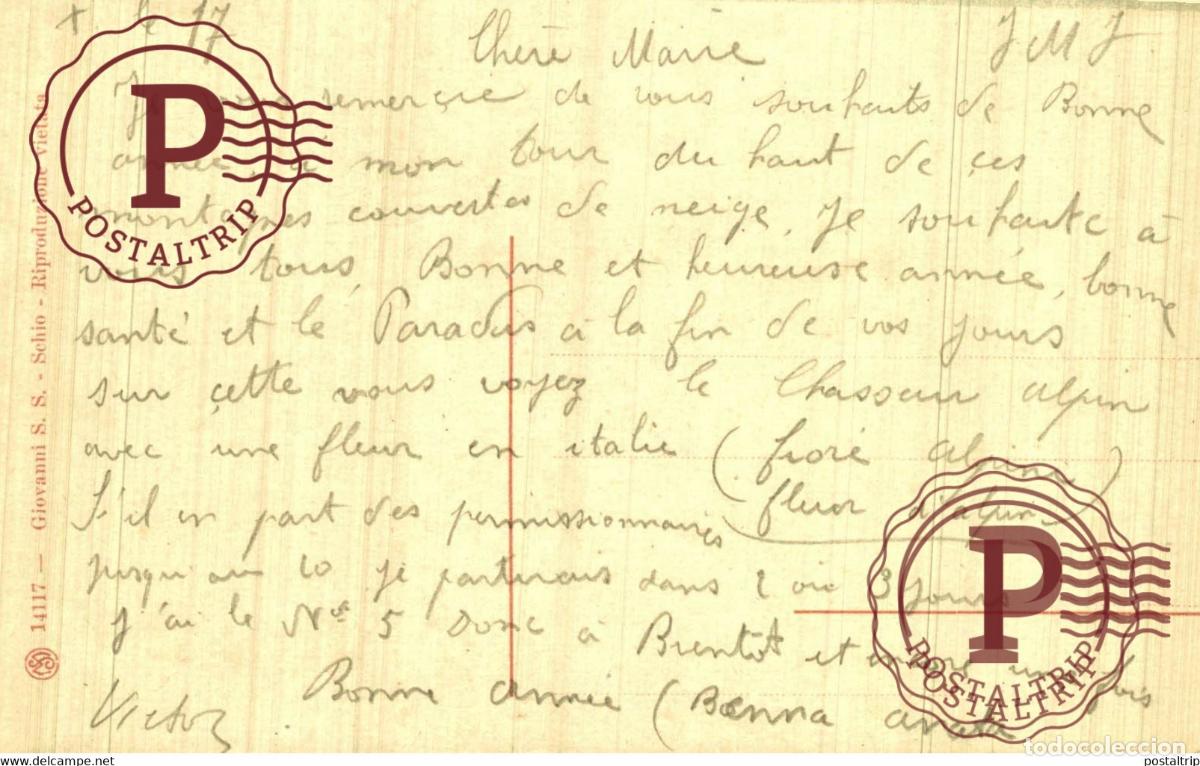 + le 17
Chère Marie
J M J
remercie de vous souhaits de Bonne
à mon tour du haut de ces
montagnes couvertes de neige, Je souhaite à
vous tous, Bonne et heureuse année, bonne
santé et le Paradis à la fin de vos jours
sur cette vous voyez le Chasseur alpin
avec une fleur en italie (fioré alpini)
fleur
S'il en part des permissionnaires
jusqu'au 10 je partirais dans 2 ou 3 jours
J'ai le No 5 Donc à Bientôt et
Bonne année (Bonna
Victor
14117 — Giovanni S. S. - Schio - Riproduzione vietata
P
POSTALTRIP
P
POSTALTRIP
POSTALTRIP
todocoleccion
www.delcampe.net
postaltrip